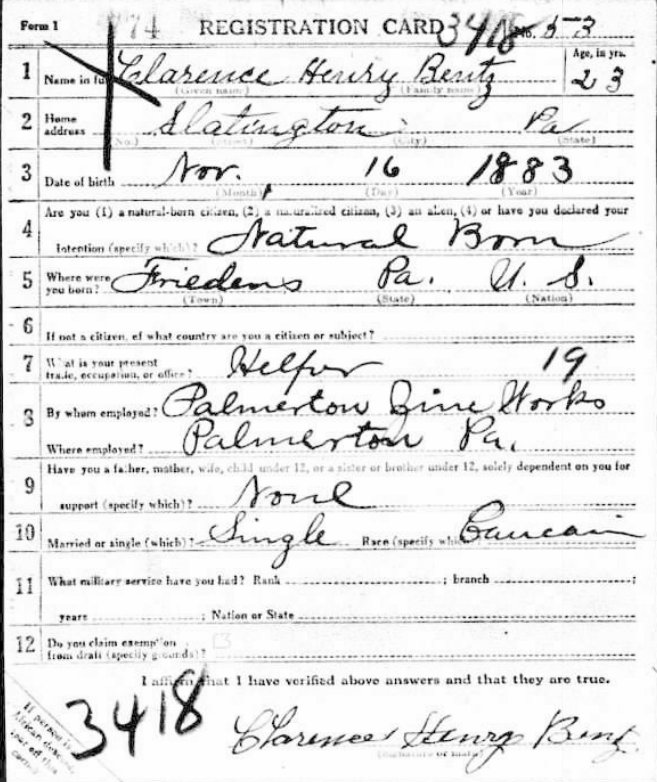 Form 1 174 REGISTRATION CARD 3418 No. 53
1 Name in full Clarence Henry Bentz Age, in yrs. 23
(Given name) (Family name)
2 Home address Slatington Pa
(No.) (Street) (City) (State)
3 Date of birth Nov. 16 1883
(Month) (Day) (Year)
4 Are you (1) a natural-born citizen, (2) a naturalized citizen, (3) an alien, (4) or have you declared your
intention (specify which)? Natural Born
5 Where were you born? Friedens Pa. U. S.
(Town) (State) (Nation)
6 If not a citizen, of what country are you a citizen or subject?
7 What is your present trade, occupation, or office? Helper 19
8 By whom employed? Palmerton Zinc Works
Where employed? Palmerton Pa.
9 Have you a father, mother, wife, child under 12, or a sister or brother under 12, solely dependent on you for
support (specify which)? None
10 Married or single (which)? Single Race (specify which)? Caucain
11 What military service have you had? Rank ; branch ;
years ; Nation or State
12 Do you claim exemption from draft (specify grounds)?
I affirm that I have verified above answers and that they are true.
3418
Clarence Henry Bentz
(Signature or mark)
If person is
of African descent,
tear off this
corner